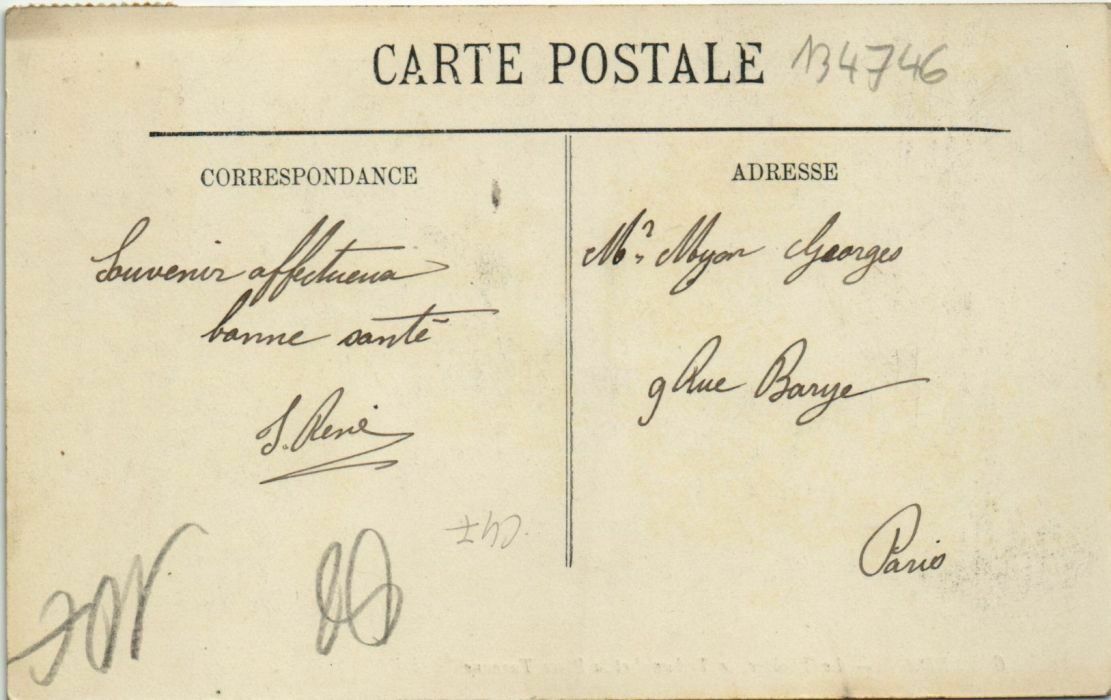 CARTE POSTALE
134746
CORRESPONDANCE
Souvenir affectueux
bonne santé
J. René
ADRESSE
Mr Myon Georges
9 Rue Barye
Paris